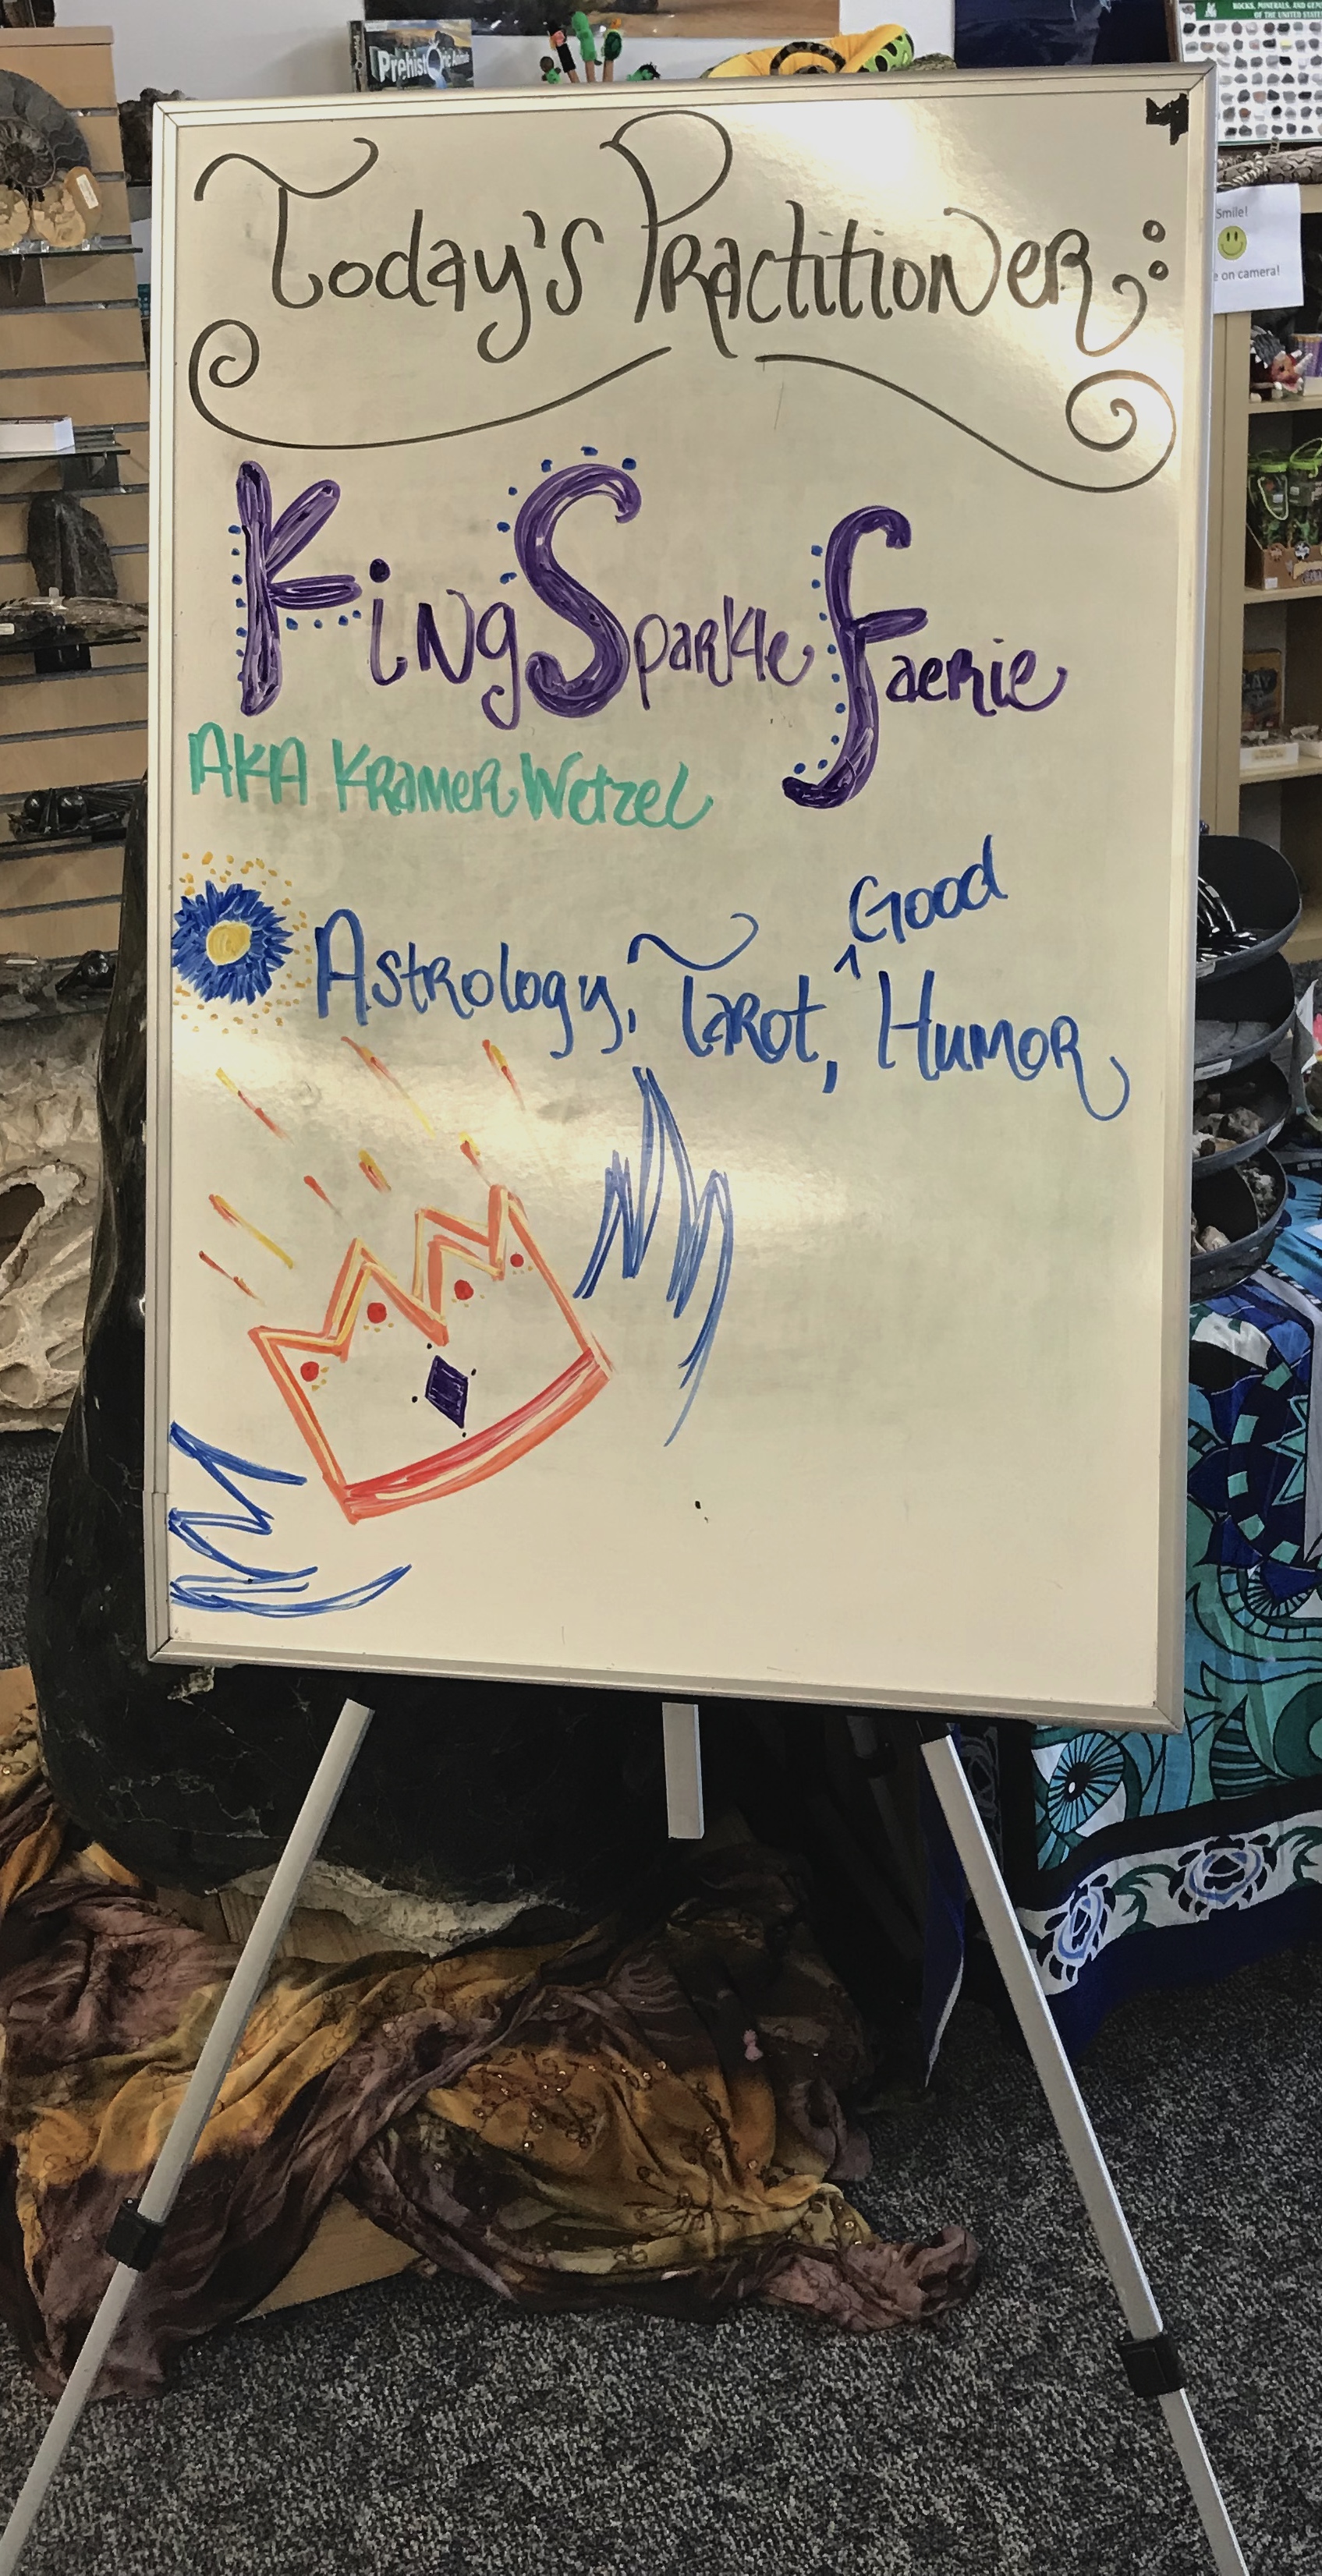 Today's Practitioner:
King Sparkle Faerie
AKA Kramer Wetzel
Good
Astrology, Tarot, ^ Humor
Prehistoric
ROCKS, MINERALS, AND GEMS
OF THE UNITED STATES
Smile!
on camera!